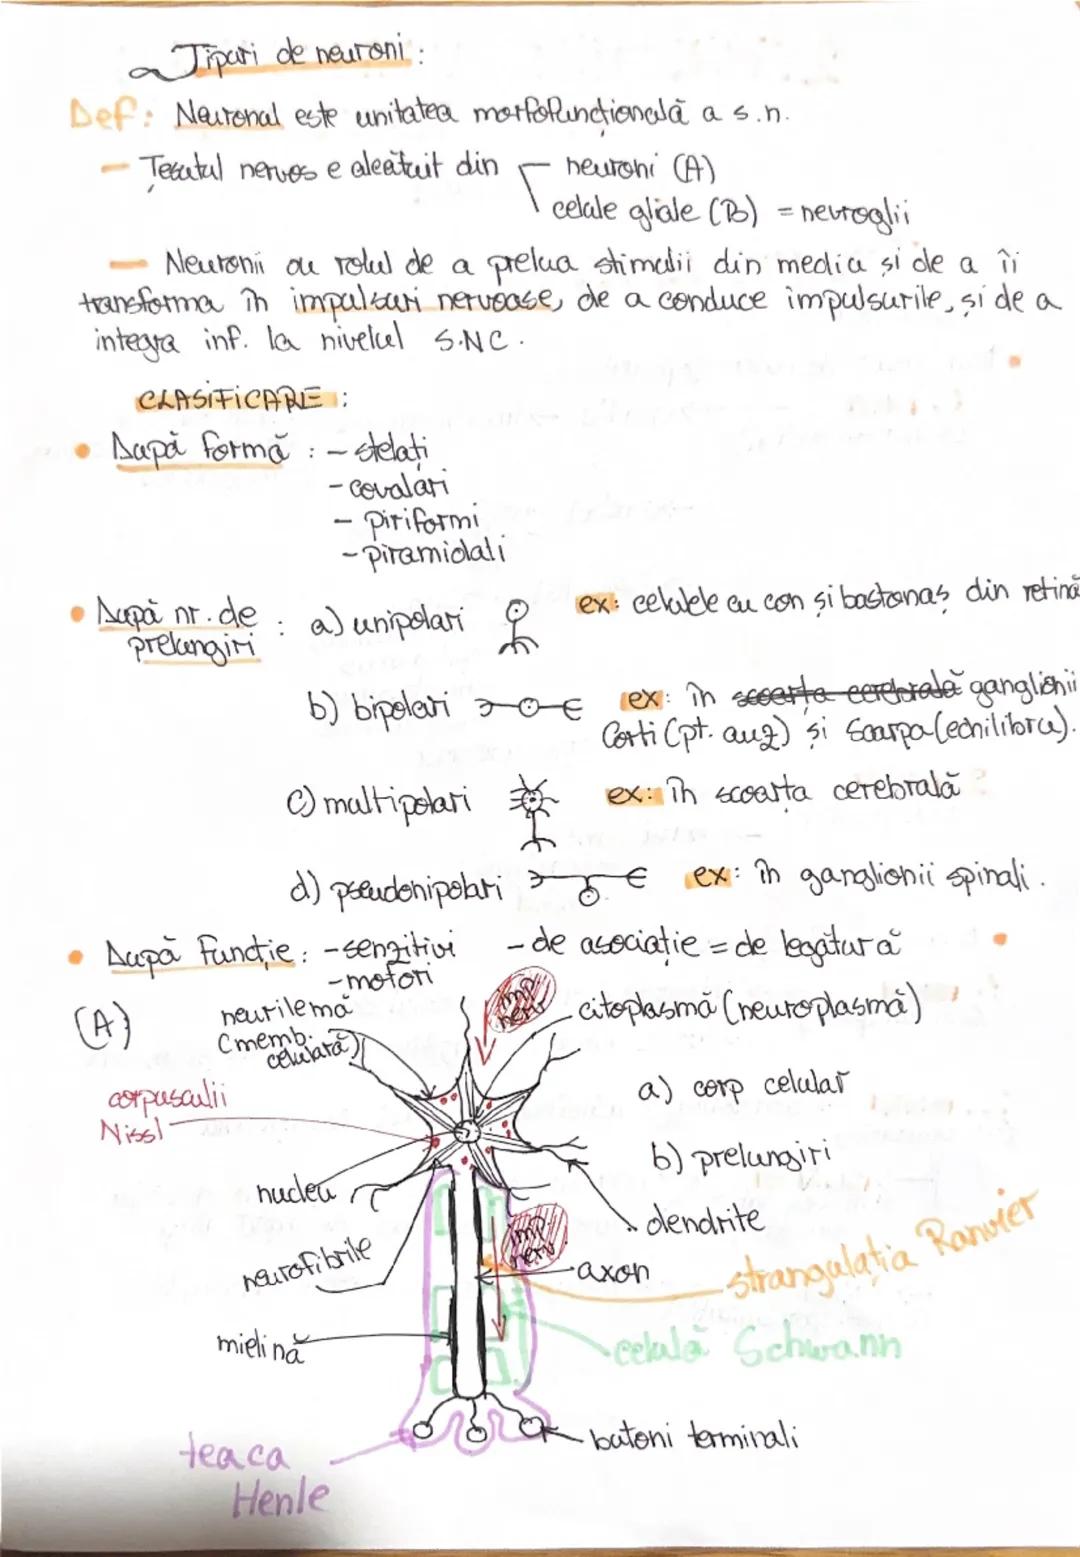 Tipuri de neuroni :
Def: Neuronul este unitatea morfofuncțională a s.n.
- Țesutul nervos e alcătuit din neuroni (A)
celule gliale (B) = nevroglii
- Neuronii au rolul de a prelua stimulii din mediu și de a îi
transforma în impulsuri nervoase, de a conduce impulsurile, și de a
integra inf. la nivelul S.N.C.
CLASIFICARE :
• După formă : - stelați
- covalari
- piriformi
- piramidali
• După nr. de prelungiri : a) unipolari ex: celulele cu con și bastonaș din retină
b) bipolari ex: în scoarța cerebrală ganglionii
Corti (pt. auz) și Scarpa (echilibru).
c) multipolari ex: în scoarta cerebrală
d) pseudonipolari ex: în ganglionii spinali.
• După funcție: - senzitivi - de asociație = de legătură
- motori
(A)
neurilemă
(memb. celulară)
imp. nerv.
citoplasmă (neuroplasmă)
corpusculii
Nissl
a) corp celular
b) prelungiri
nucleu
dendrite
imp. nerv.
neurofibrile
axon
strangulația Ranvier
mielină
celulă Schwann
butoni terminali
teaca
Henle